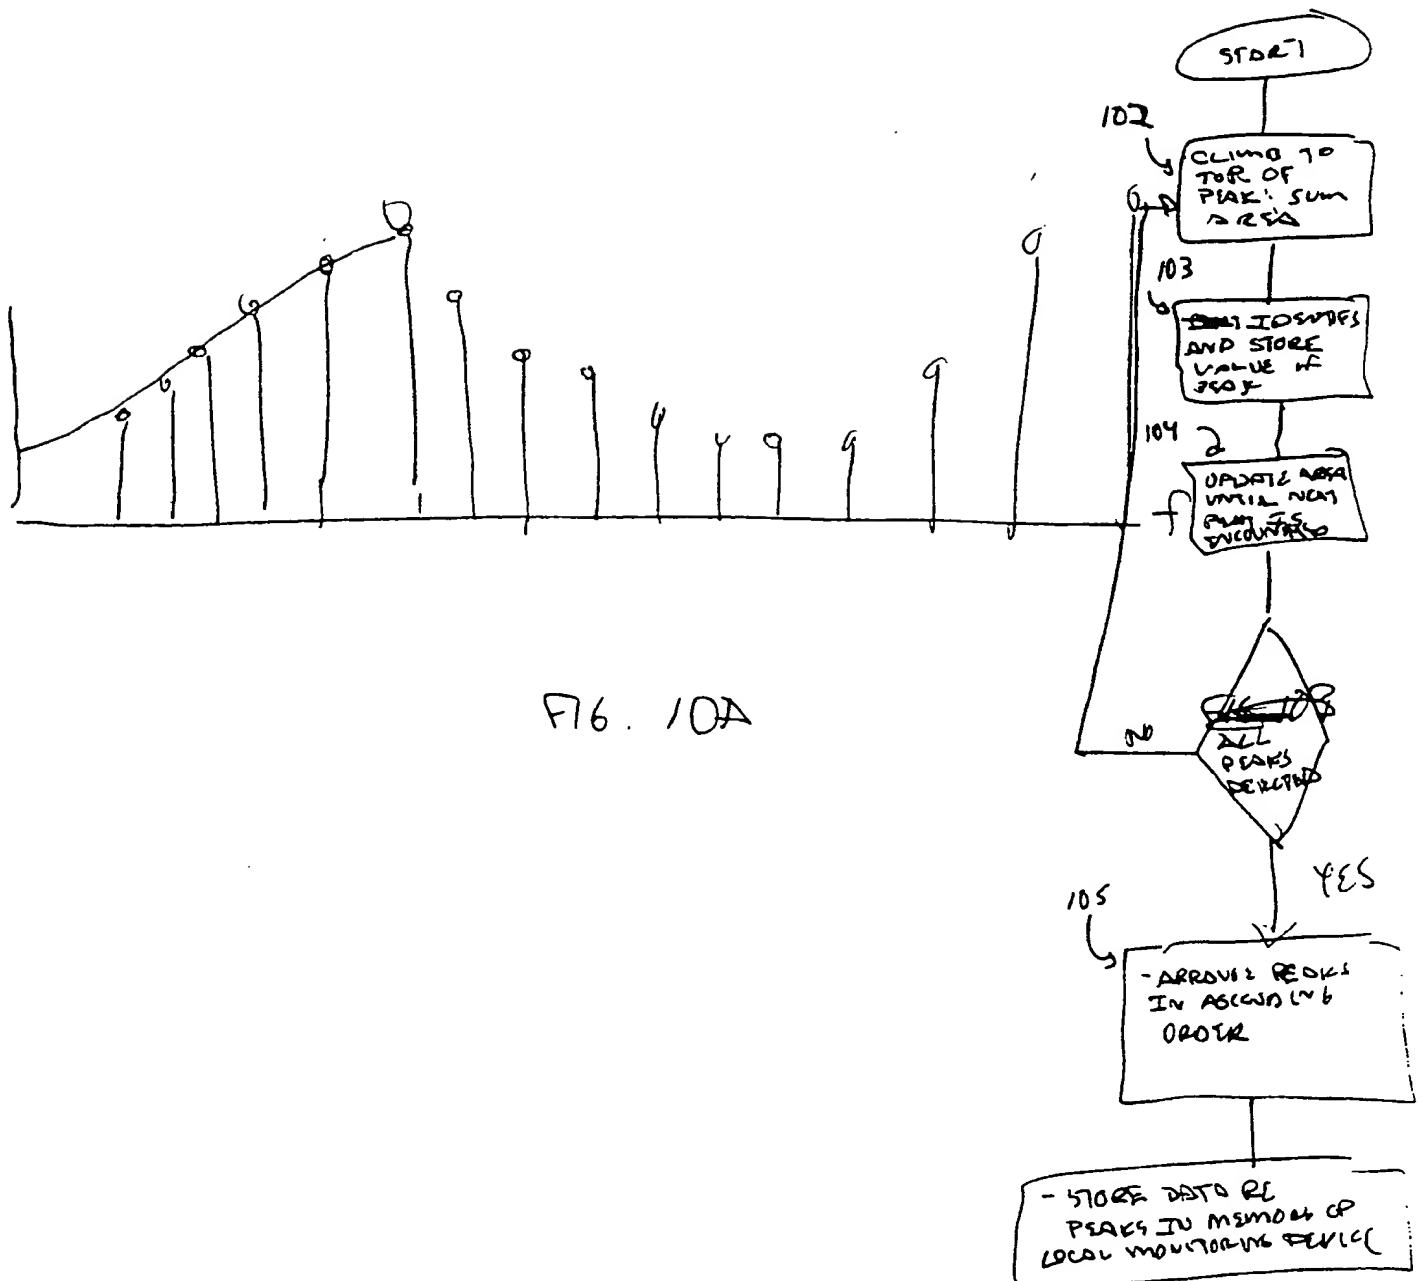 START
102
CLIMB TO
TOP OF
PEAK: SUM
AREA
103
IDENTIFS
AND STORE
VALUE OF
PEAK
104
UPDATE AREA
UNTIL NEXT
PEAK IS
ENCOUNTERED
f
FIG. 10A
NO
ALL
PEAKS
YES
105
- ARRANGE PEAKS
IN ASCENDING
ORDER
- STORE DATA RE
PEAKS IN MEMORY OF
LOCAL MONITORING DEVICE